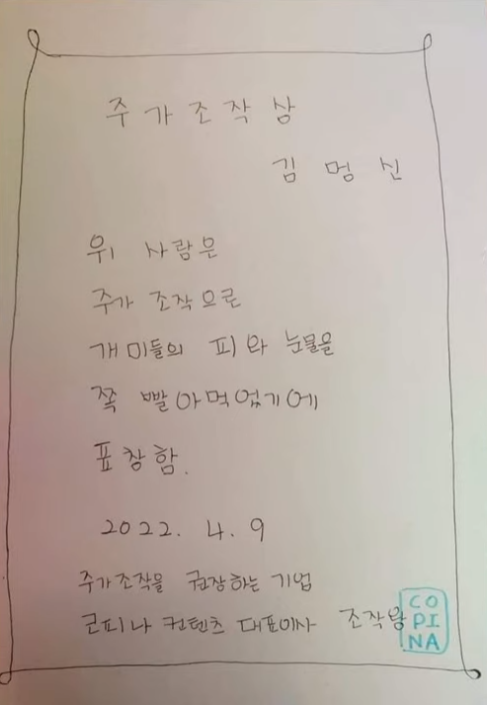 주가조작상
김멍신
위 사람은
주가 조작으로
개미들의 피와 눈물을
쪽 빨아먹었기에
표창함.
2022. 4. 9
주가조작을 권장하는 기업
코피나 컨텐츠 대표이사 조작왕
COPINA